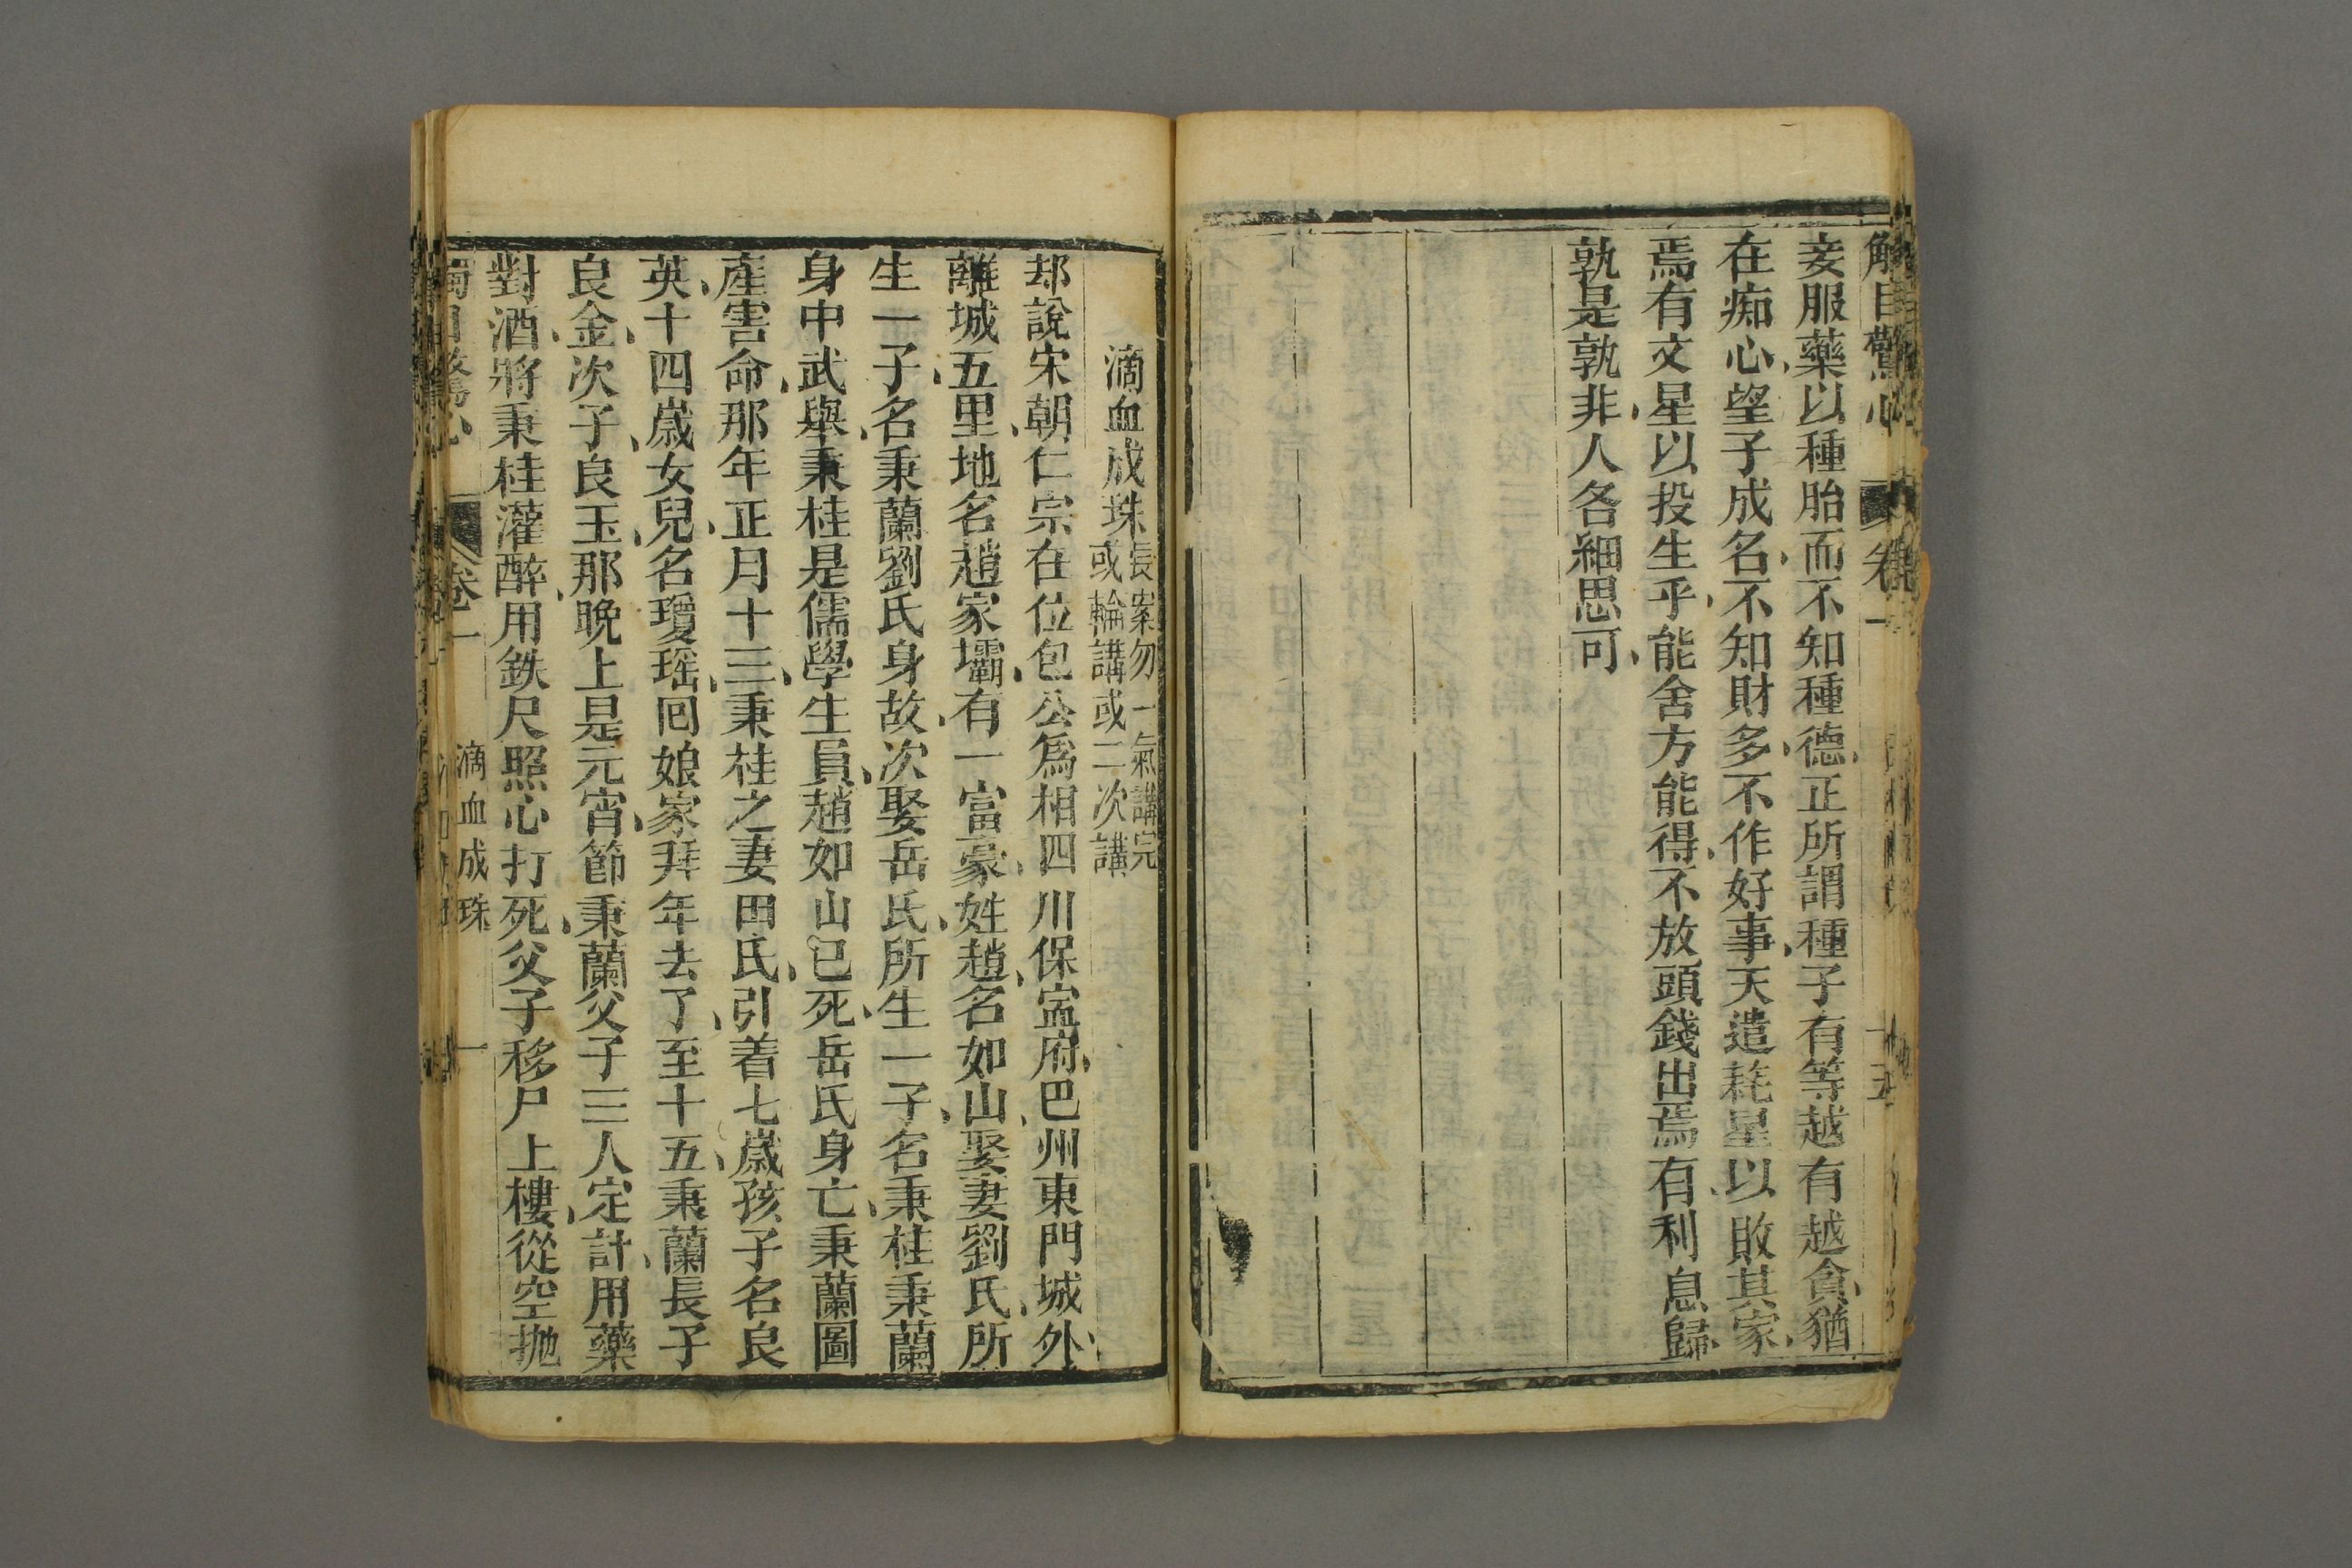 觸目驚心 卷一 十五
妾服藥以種胎而不知種德正所謂種子有等越有越貪猶
在痴心望子成名不知財多不作好事天遣耗星以敗其家
焉有文星以投生乎能舍方能得不放頭錢出焉有利息歸
孰是孰非人各細思可
滴血成珠 長案勿一氣講完或輪講或二次講
却說宋朝仁宗在位包公爲相四川保寧府巴州東門城外
離城五里地名趙家壩有一富豪姓趙名如山娶妻劉氏所
生一子名秉蘭劉氏身故次娶岳氏所生一子名秉桂秉蘭
身中武舉秉桂是儒學生員趙如山已死岳氏身亡秉蘭圖
產害命那年正月十三秉桂之妻田氏引着七歲孩子名良
英十四歲女兒名瓊瑤囘娘家拜年去了至十五秉蘭長子
良金次子良玉那晚上是元宵節秉蘭父子三人定計用藥
對酒將秉桂灌醉用鉄尺照心打死父子移尸上樓從空抛
觸目驚心 卷一 滴血成珠 一